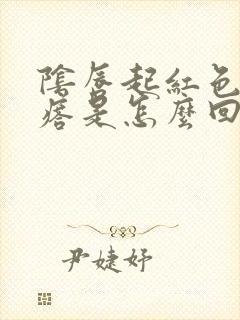 陰唇起紅色
痞是怎麼回
尹婕妤